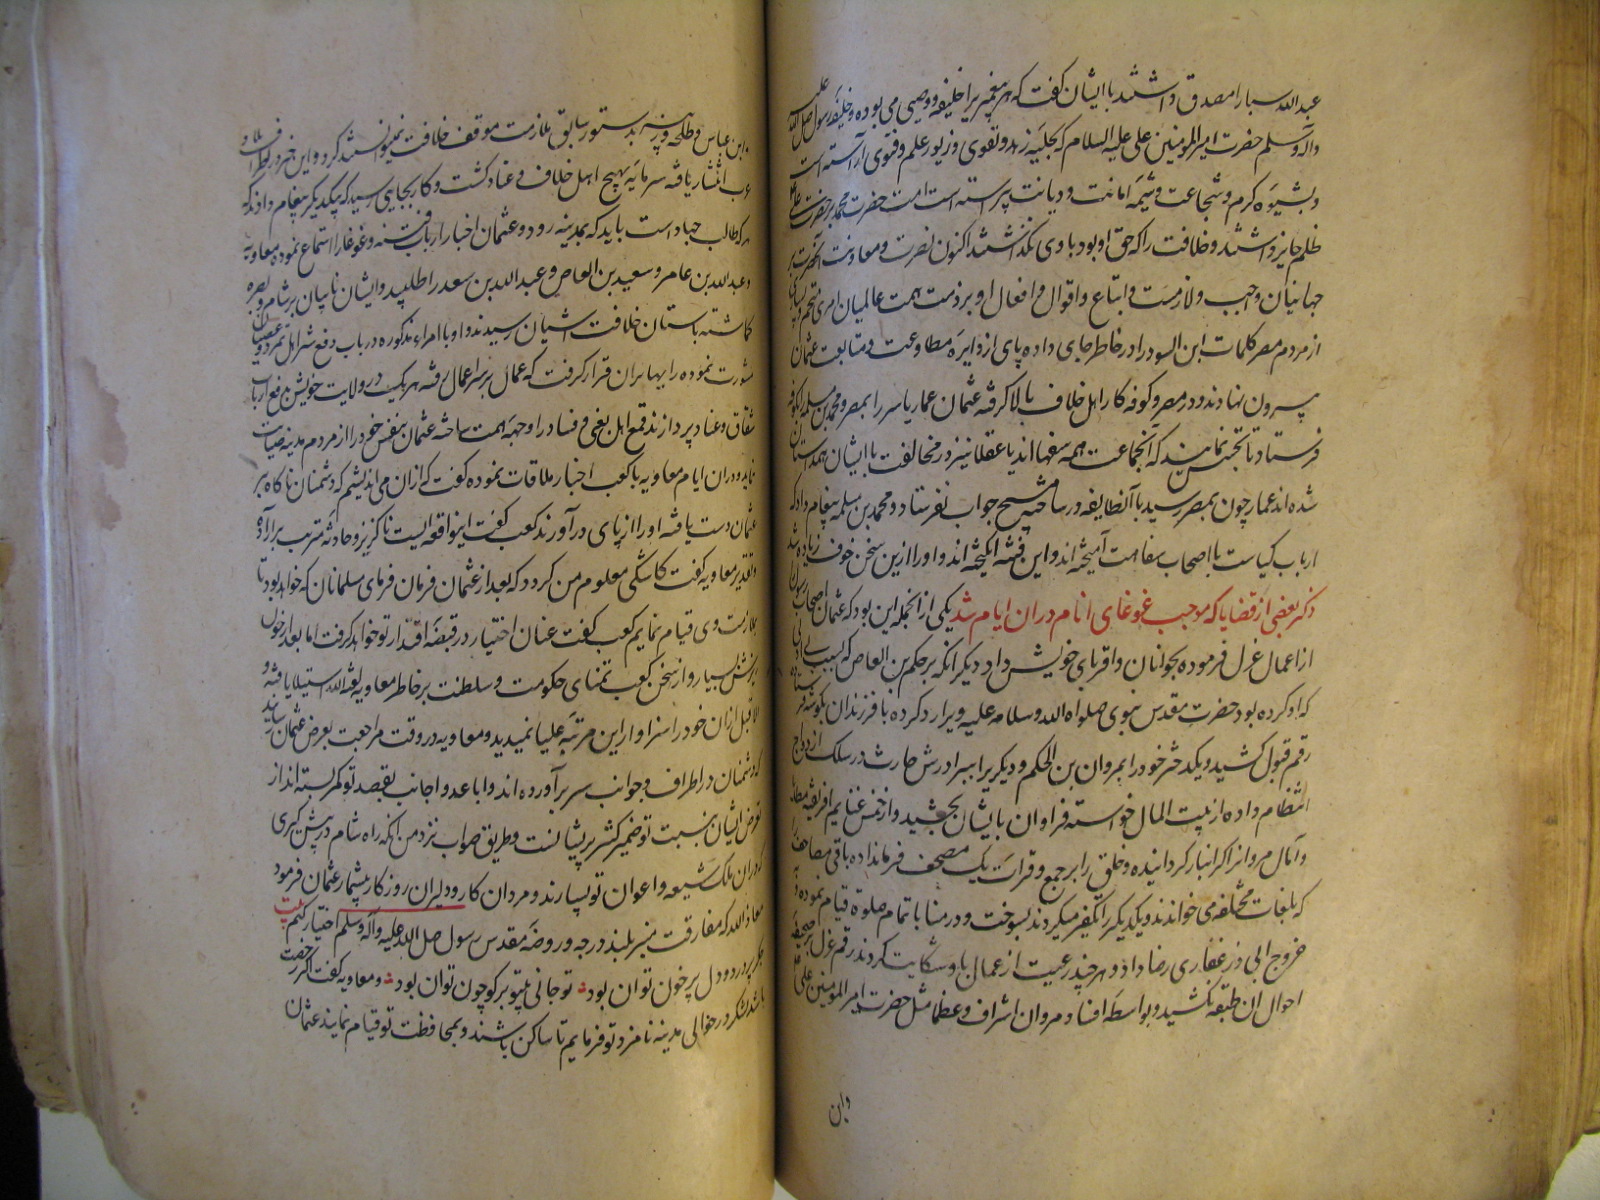 عبدالله سبا را مصدق داشتند با ایشان گفت که هر پیغمبر را خلیفه و وصی می بوده و خلیفه رسول صلی الله علیه
وآله وسلم حضرت امیر المومنین علی علیه السلام که بحلیه زهد و تقوی و زیور علم و فتوی آراسته است
و بشیوه کرم و شجاعت و شیمه امانت و دیانت پیراسته است امت حضرت محمد بر حضرت علی
ظلم جایز داشتند و خلافت را که حق او بود باوی نگذاشتند اکنون نصرت و معاونت آنحضرت بر
جهانیان واجب و لازمست و اتباع و اقوال و افعال او بر ذمت همت عالمیان امری متحتم
از مردم مصر کلمات ابن السودا را در خاطر جای داده پای از دایره مطاوعت و متابعت عثمان
بیرون نهادند و در مصر و کوفه کار اهل خلاف بالا گرفته عثمان عمار یاسر را بمصر و محمد بن مسلمه را بکوفه
فرستاد تا تجسس نمایند که آنجماعت همه سفهااند یا عقلا نیز در مخالفت با ایشان همداستان
شده اند عمار چون بمصر رسید با آنطایفه در ساخته هیچ جواب نفرستاد و محمد بن مسلمه پیغام داد که
ارباب کیاست با اصحاب سفاهت آمیخته اند و این فتنه انگیخته اند و او را ازین سخن خوف زیاده شد
ذکر بعضی از قضایا که موجب غوغای انام در ان ایام شد یکی از انجمله این بود که عثمان اصحاب رسول
از اعمال عزل فرموده بجوانان و اقربای خویش داد دیگر انکه بر حکم بن العاص که بسبب بی ادبی
که او کرده بود حضرت مقدس نبوی صلواة الله وسلامه علیه ویرا رد کرده با فرزندان بگوشه
رقم قبول کشید و یکدختر خود را بمروان بن الحکم و دیگریرا ببرادرش حارث در سلک ازدواج
انتظام داده از بیت المال خواسته فراوان بایشان بخشید و از خمس غنایم افریقیه
و آمال مروانرا گرانبار گردانیده و خلق را بر جمع و قرات یک مصحف فرمانداده باقی مصاحف را
که بلغات مختلفه می خواندند و یکدیگر را تکفیر میکردند بسوخت و در منا باتمام صلوة قیام نموده
خروج ابی ذر غفاری رضا داد و هر چند رعیت از عمال باو شکایت کردند رقم عزل بر صحیفه
احوال ان طبقه نکشید و بواسطه افساد مروان اشراف و عظما مثل حضرت امیر المومنین علی
وابن
وابن عباس و طلحه و زبیر بدستور سابق ملازمت موقف خلافت نمیتوانستند کرد و این خبر در اطراف بلاد
عرب انتشار یافته سرمایه تهییج اهل خلاف و عناد گشت و کار بجایی رسید که بیکدیگر پیغام دادند که
هر که طالب جهاد است باید که بمدینه رود و عثمان اخبار ارباب فتنه و غوغا را استماع نموده معاویه
و عبدالله بن عامر و سعید بن العاص و عبدالله بن سعد را طلبید و ایشان نایبان بر شام و بصره
گماشته باستان خلافت اشیان رسیدند و او با امراء مذکوره در باب دفع شر اهل تمرد و عصیان
مشورت نموده رایها بران قرار گرفت که عمال بر سر اعمال رفته هر یک در ولایت خویش بدفع ارباب
شقاق و عناد پردازند قمع اهل بغی و فساد را وجهه همت ساخته عثمان بنفس خود را از مردم مدینه صیانت
نماید و در ان ایام معاویه با کعب احبار ملاقات نموده گفت که ازان می اندیشم که دشمنان ناگاه بر
عثمان دست یافته او را از پای در آورند کعب گفت اینواقعه ایست ناگزیر و حادثه
و تقدیر معاویه گفت کاشکی معلوم من کردد که بعد از عثمان فرمان فرمای مسلمانان که خواهد بود تا
بملازمت وی قیام نمایم کعب گفت عنان اختیار در قبضه اقتدار تو خواهد گرفت اما بعد از خون
ریزش بسیار و از سخن کعب تمنای حکومت و سلطنت بر خاطر معاویه لعنه الله استیلا یافته و
الا قبل ازان خود را سزاوار این مرتبه علیا نمیدید و معاویه در وقت مراجعت بعرض عثمان رسانید
که دشمنان در اطراف و جوانب سر بر آورده اند و اباعد و اجانب بقصد تو کمر بسته اند از
تعرض ایشان بنسبت تو ضمیر کشر پریشانست و طریق صواب نزد من انکه راه شام در پیش گیری
که دران ملک شیعه و اعوان تو بسیارند و مردان کار و دلیران روزگار بیشمار عثمان فرمود
معاذالله که مفارقت منبر بلند درجه و روضه مقدسه رسول صلی الله علیه وآله وسلم اختیار کنم بیت
جگر پر درد و دل پر خون توان بود تو جانی بیتو بر گو چون توان بود و معاویه گفت اگر رخصت
باشد لشکر در حوالی مدینه نامزد تو فرمایم تا ساکن باشند و بمحافظت تو قیام نمایند عثمان